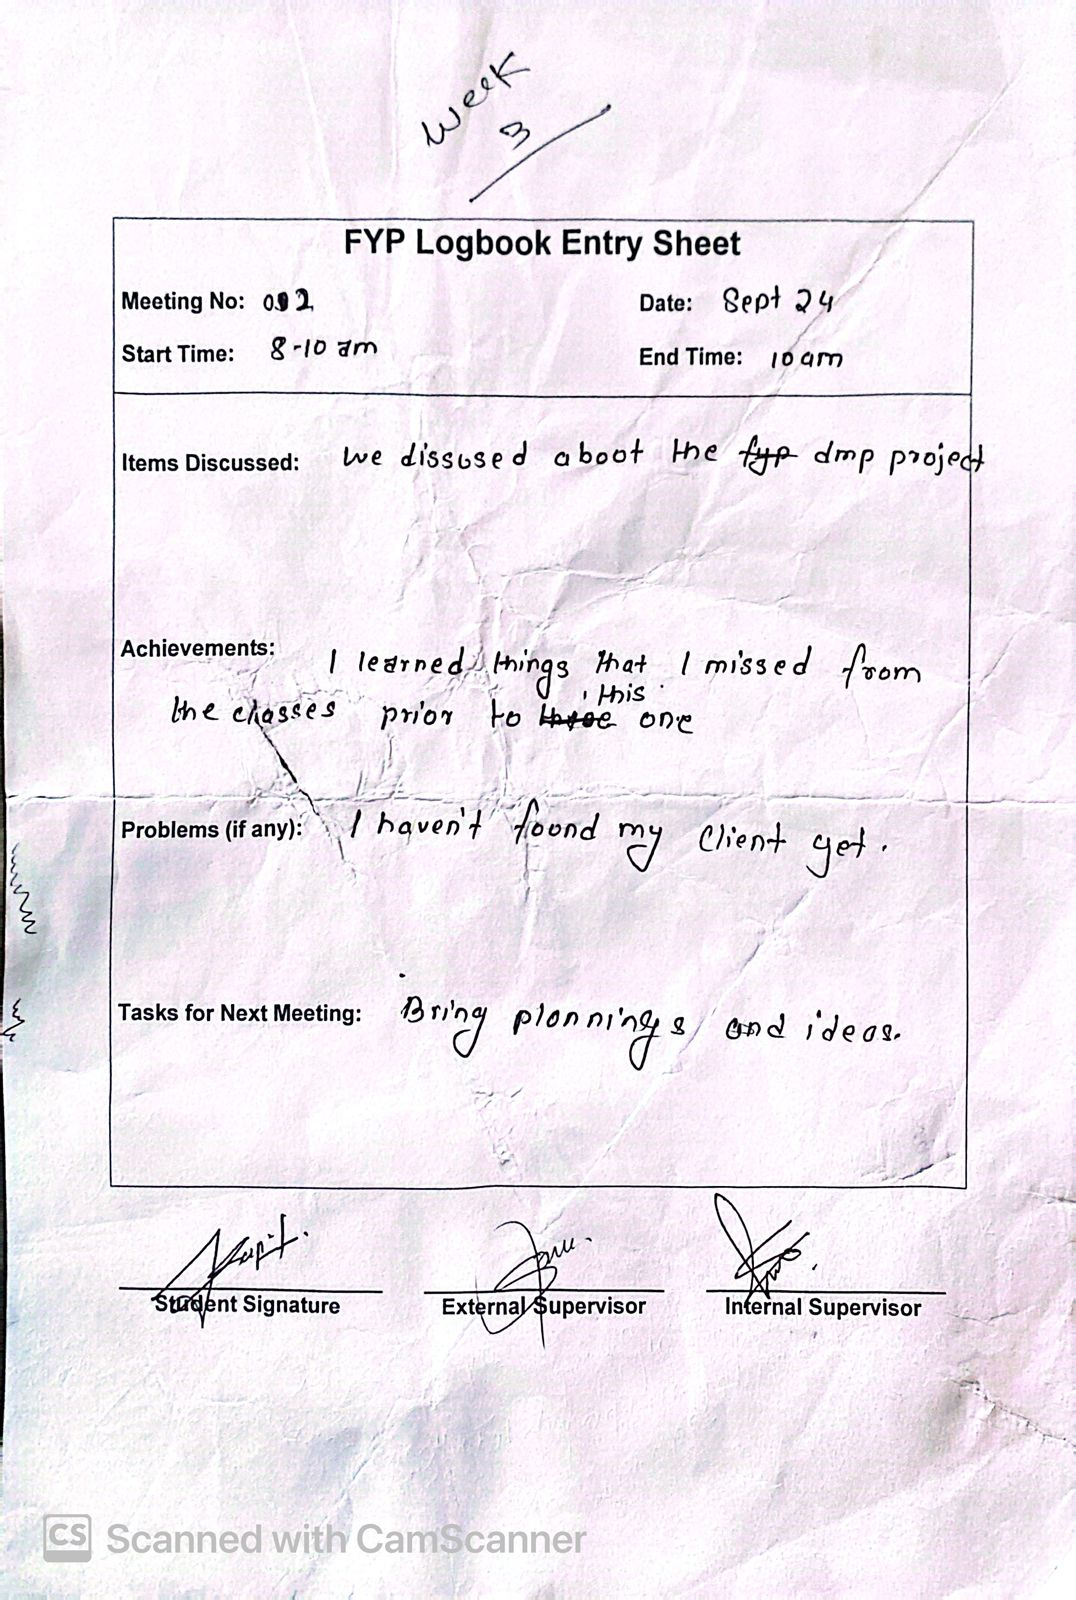 Week
3
FYP Logbook Entry Sheet
Meeting No: 002 Date: Sept 24
Start Time: 8-10 am End Time: 10am
Items Discussed: We dissused aboot the fyp dmp project
Achievements: I learned things that I missed from
this
the classes prior to one
Problems (if any): I haven't foond my Client yet.
Tasks for Next Meeting: Bring plannings and ideas.
Student Signature External Supervisor Internal Supervisor
CS Scanned with CamScanner